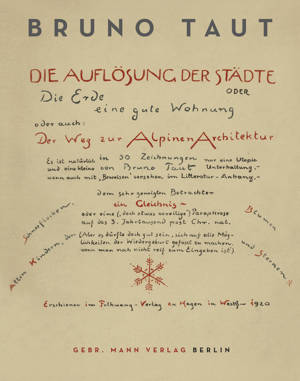 BRUNO TAUT
DIE AUFLÖSUNG DER STÄDTE
ODER
Die Erde
eine gute Wohnung
oder auch:
Der Weg zur Alpinen Architektur
Es ist natürlich in 30 Zeichnungen nur eine Utopie
und eine kleine von Bruno Taut Unterhaltung,-
wenn auch mit „Beweisen" versehen im Litteratur-Anhang,-
dem sehr geneigten Betrachter
ein Gleichnis -
oder eine (doch etwas voreilige) Paraphrase
auf das 3. Jahrtausend post Chr. nat.
(Aber es dürfte doch gut sein, sich auf alle Mög-
lichkeiten der Wiedergeburt gefasst zu machen,
wenn man noch nicht reif zum Eingeben ist).
Allen Kindern, Schneeflocken,
Blumen und Sternen
Erschienen im Folkwang-Verlag zu Hagen im Westf. 1920
GEBR. MANN VERLAG BERLIN